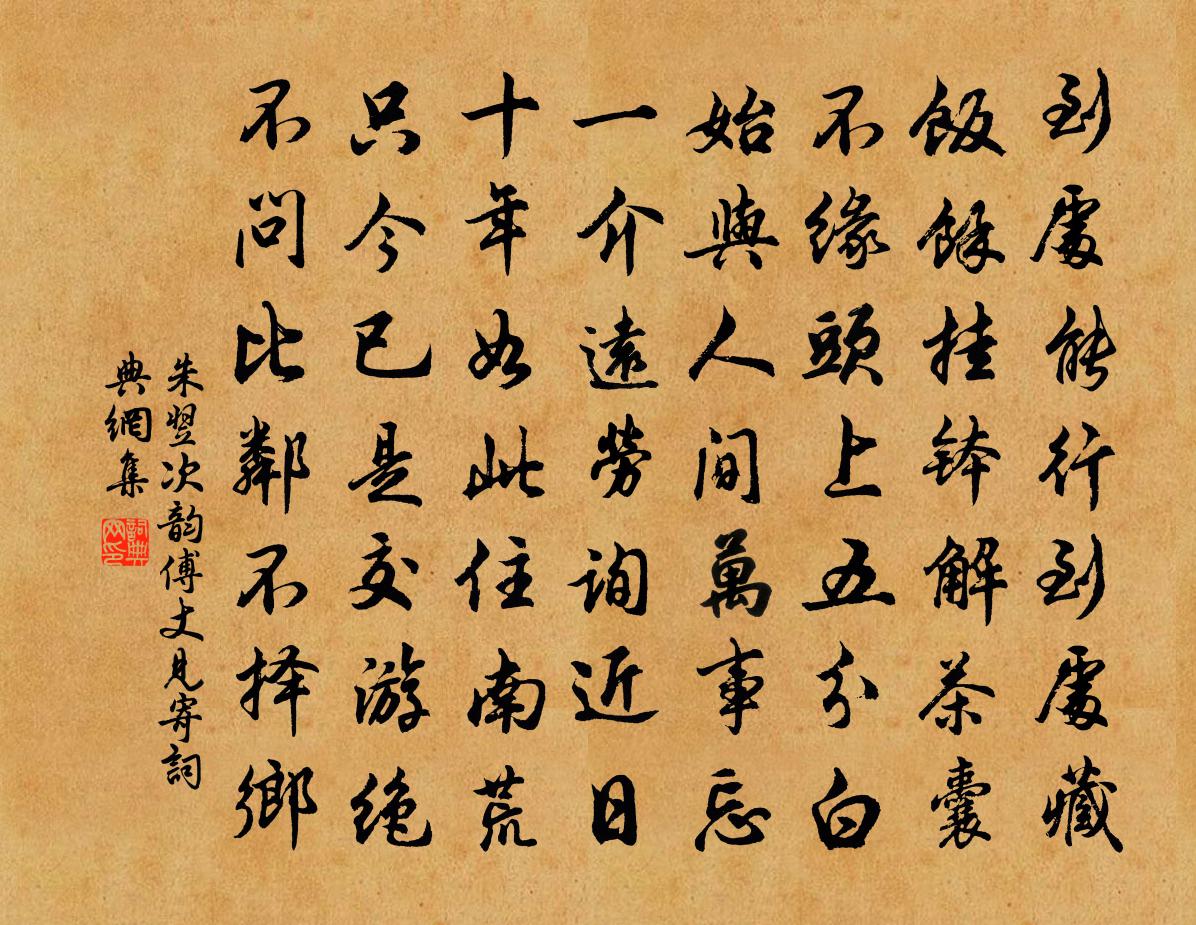 到處能行到處藏
飯餘挂鉢解茶囊
不緣頭上五分白
始與人間萬事忘
一介遠勞詢近日
十年如此住南荒
只今已是交游絕
不問比鄰不择鄉
朱翌次韵傅丈見寄詞
典網集
詞典网印